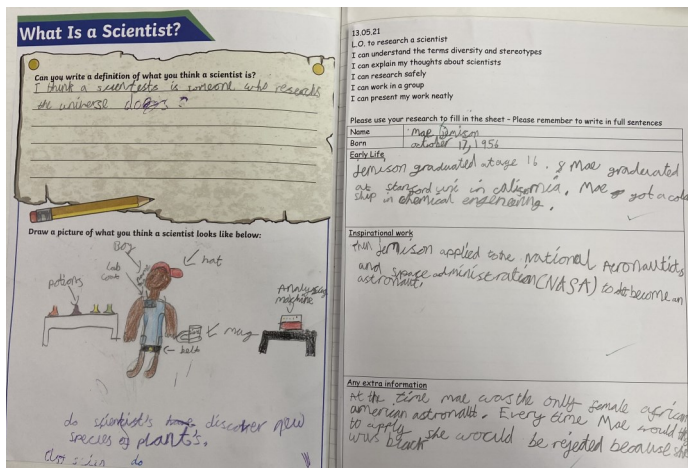 What Is a Scientist?
Can you write a definition of what you think a scientist is?
I think a scientests is someone who reseachs
the universe does ?
Draw a picture of what you think a scientist looks like below:
Boy
hat
lab
coat
potions
Analysing
machine
mug
belt
do scientist's discover new
species of plant's.
do
13.05.21
L.O. to research a scientist
I can understand the terms diversity and stereotypes
I can explain my thoughts about scientists
I can research safely
I can work in a group
I can present my work neatly
Please use your research to fill in the sheet - Please remember to write in full sentences
Name Mae Jemison
Born october 17, 1956
Early Life
Jemison graduated at age 16. Mae graduated
at stanford in Mae got a
ship in chemical
Inspirational work
then Jemison applied to the National Aeronautics
and space administration (NASA) to become an
astronaut.
Any extra information
At the time mae was the only female african
american astronaut. Every time Mae would
to apply she would be rejeted because
was black